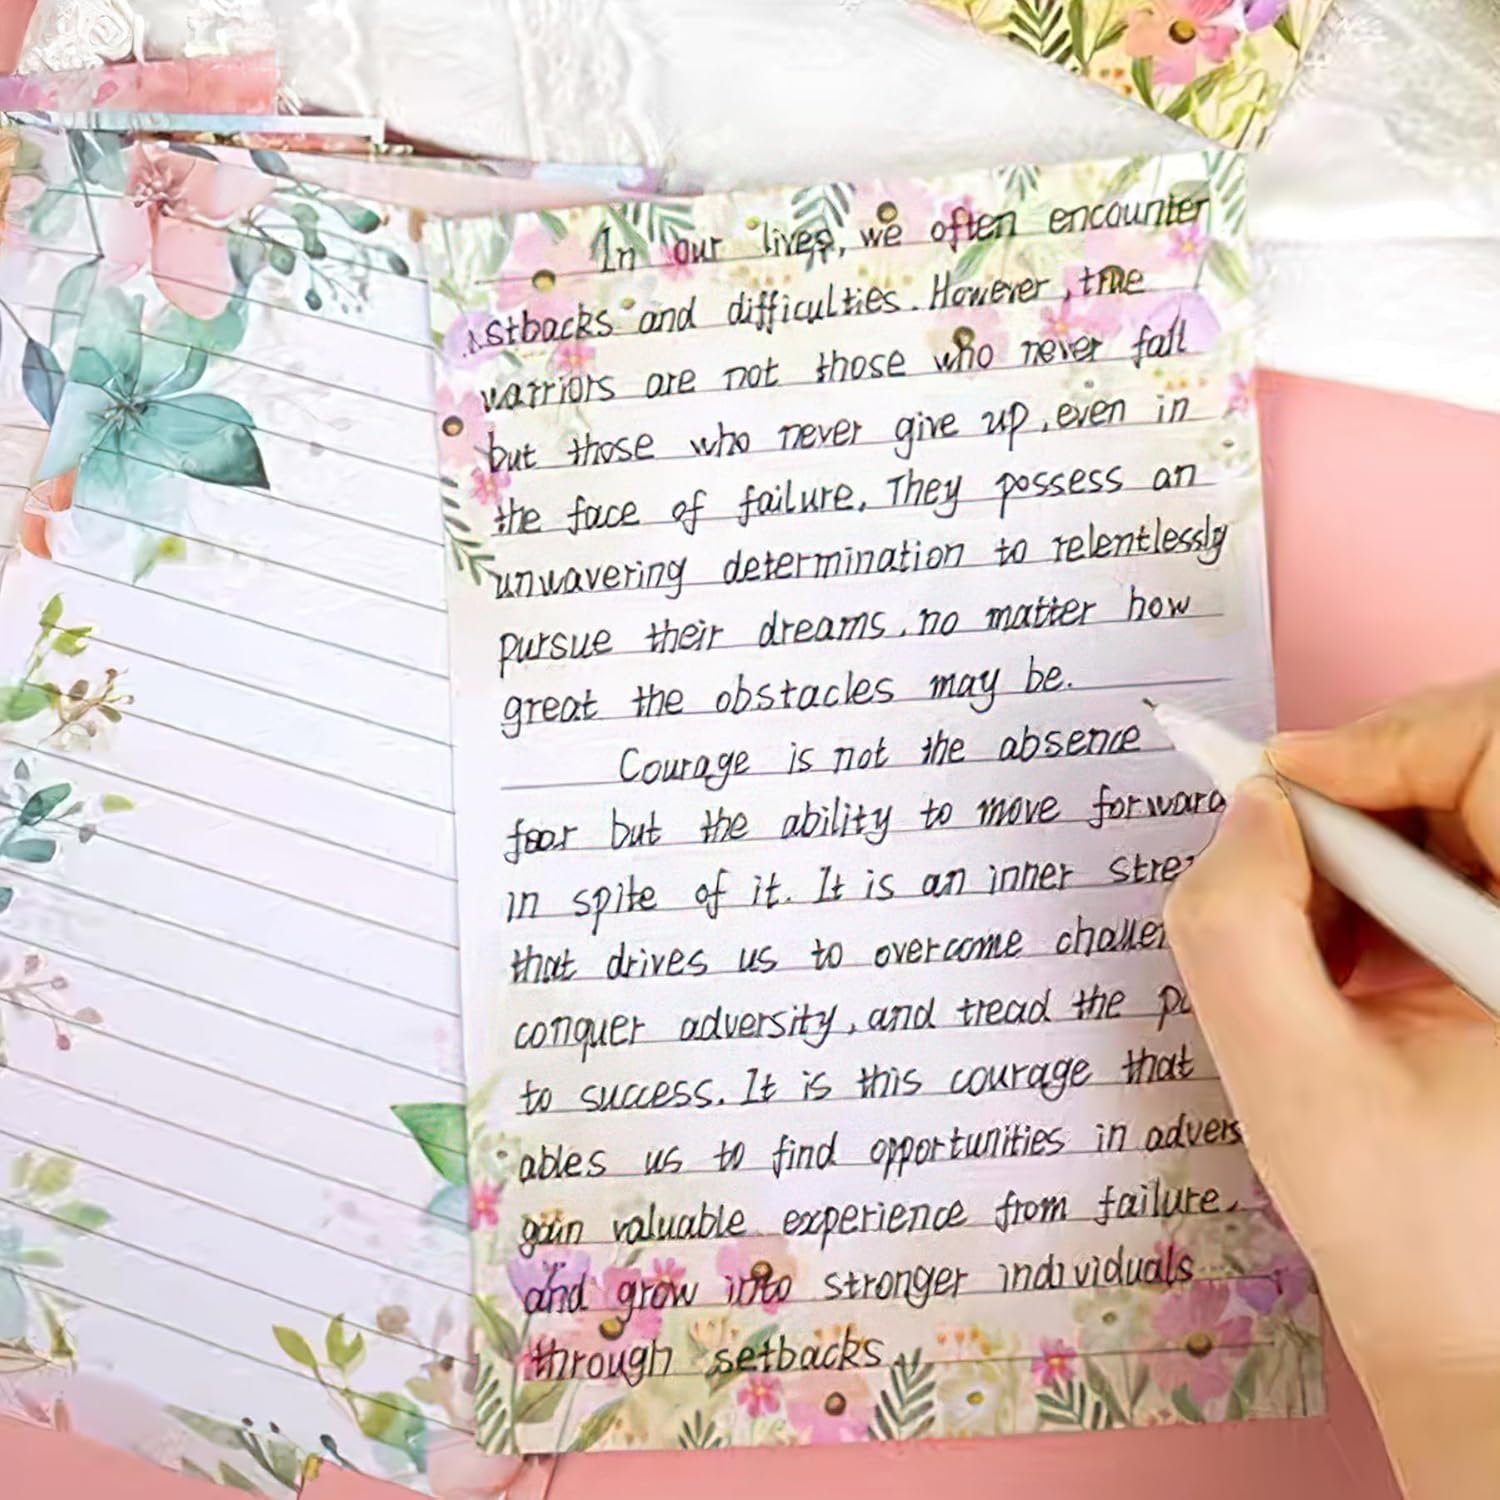 In our lives, we often encounter
stbacks and difficulties. However, true
warriors are not those who never fall
but those who never give up, even in
the face of failure. They possess an
unwavering determination to relentlessly
pursue their dreams, no matter how
great the obstacles may be.
Courage is not the absence
fear but the ability to move forward
in spite of it. It is an inner stre
that drives us to overcome challen
conquer adversity, and tread the
to success. It is this courage that
ables us to find opportunities in advers
gain valuable experience from failure,
and grow into stronger individuals
through setbacks